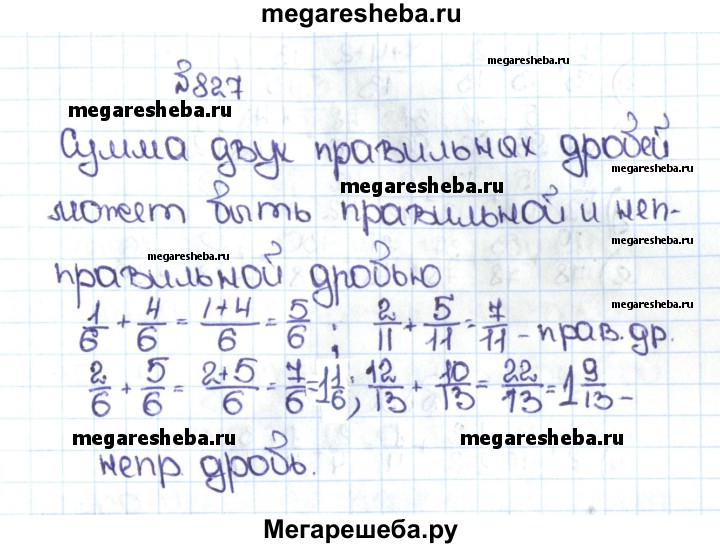 megaresheba.ru
megaresheba.ru
№827
megaresheba.ru
Сумма двух правильных дробей
megaresheba.ru
megaresheba.ru
может быть правильной и неп-
megaresheba.ru
правильной дробью
megaresheba.ru
1/6 + 4/6 = 1+4/6 = 5/6 ; 2/11 + 5/11 = 7/11 - прав. др.
2/6 + 5/6 = 2+5/6 = 7/6 = 1 1/6 ; 12/13 + 10/13 = 22/13 = 1 9/13 -
megaresheba.ru
megaresheba.ru
непр дробь.
Мегарешеба.ру